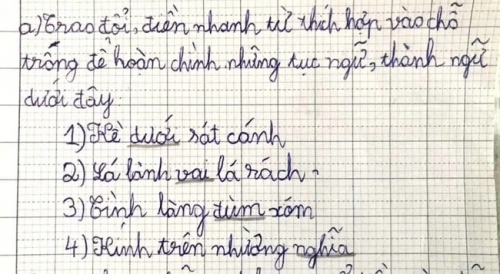 a) Trao đổi, điền nhanh từ thích hợp vào chỗ
trống để hoàn chỉnh những tục ngữ, thành ngữ
dưới đây
1) Kề dưới sát cánh
2) Lá lành vai lá rách.
3) Tình làng đùm xóm
4) Kính trên nhường nghĩa